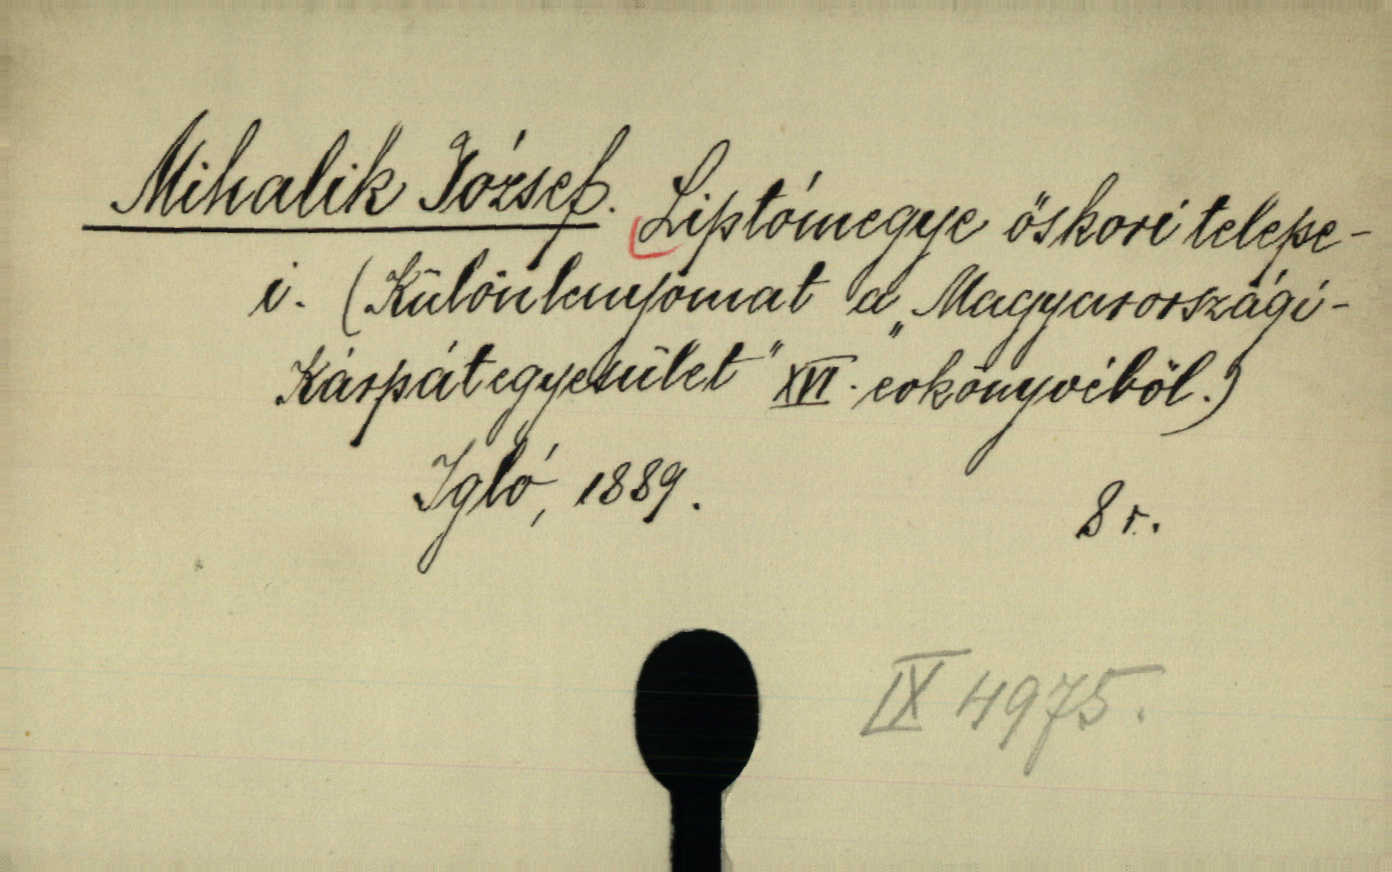 Mihalik József. Liptómegye őskori telepe-
i. (Különlenyomat a „Magyarországi-
Kárpátegyesület" XVI. évkönyvéből.)
Igló, 1889. 8 r.
IX 4975.